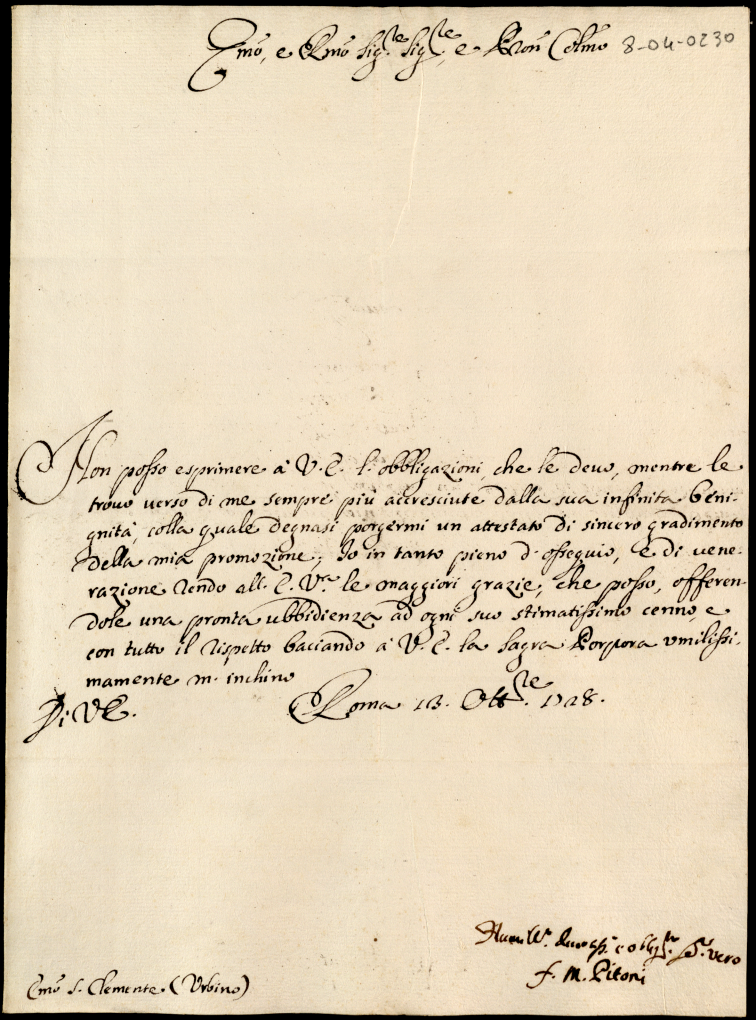 Emo, e Rmo Sig.re Sig.re, e Pron Colmo 8-04-0230
Non posso esprimere à V. E. l'obbligazioni, che le devo, mentre le
trovo verso di me sempre più accresciute dalla sua infinita beni-
gnità, colla quale degnasi porgermi un attestato di sincero gradimento
della mia promozione; Io in tanto pieno d'ossequio, e di vene-
razione rendo all'E. Vra le maggiori grazie, che posso, offeren-
dole una pronta ubbidienza ad ogni suo stimatissimo cenno, e
con tutto il rispetto baciando à V. E. la Sagra Porpora umilissi-
mamente m'inchino
Di VE. Roma 13. Ott.re 1728.
Humill.o e obblig.mo S.r vero
f. M. Pitoni
Emo S. Clemente (Urbino)